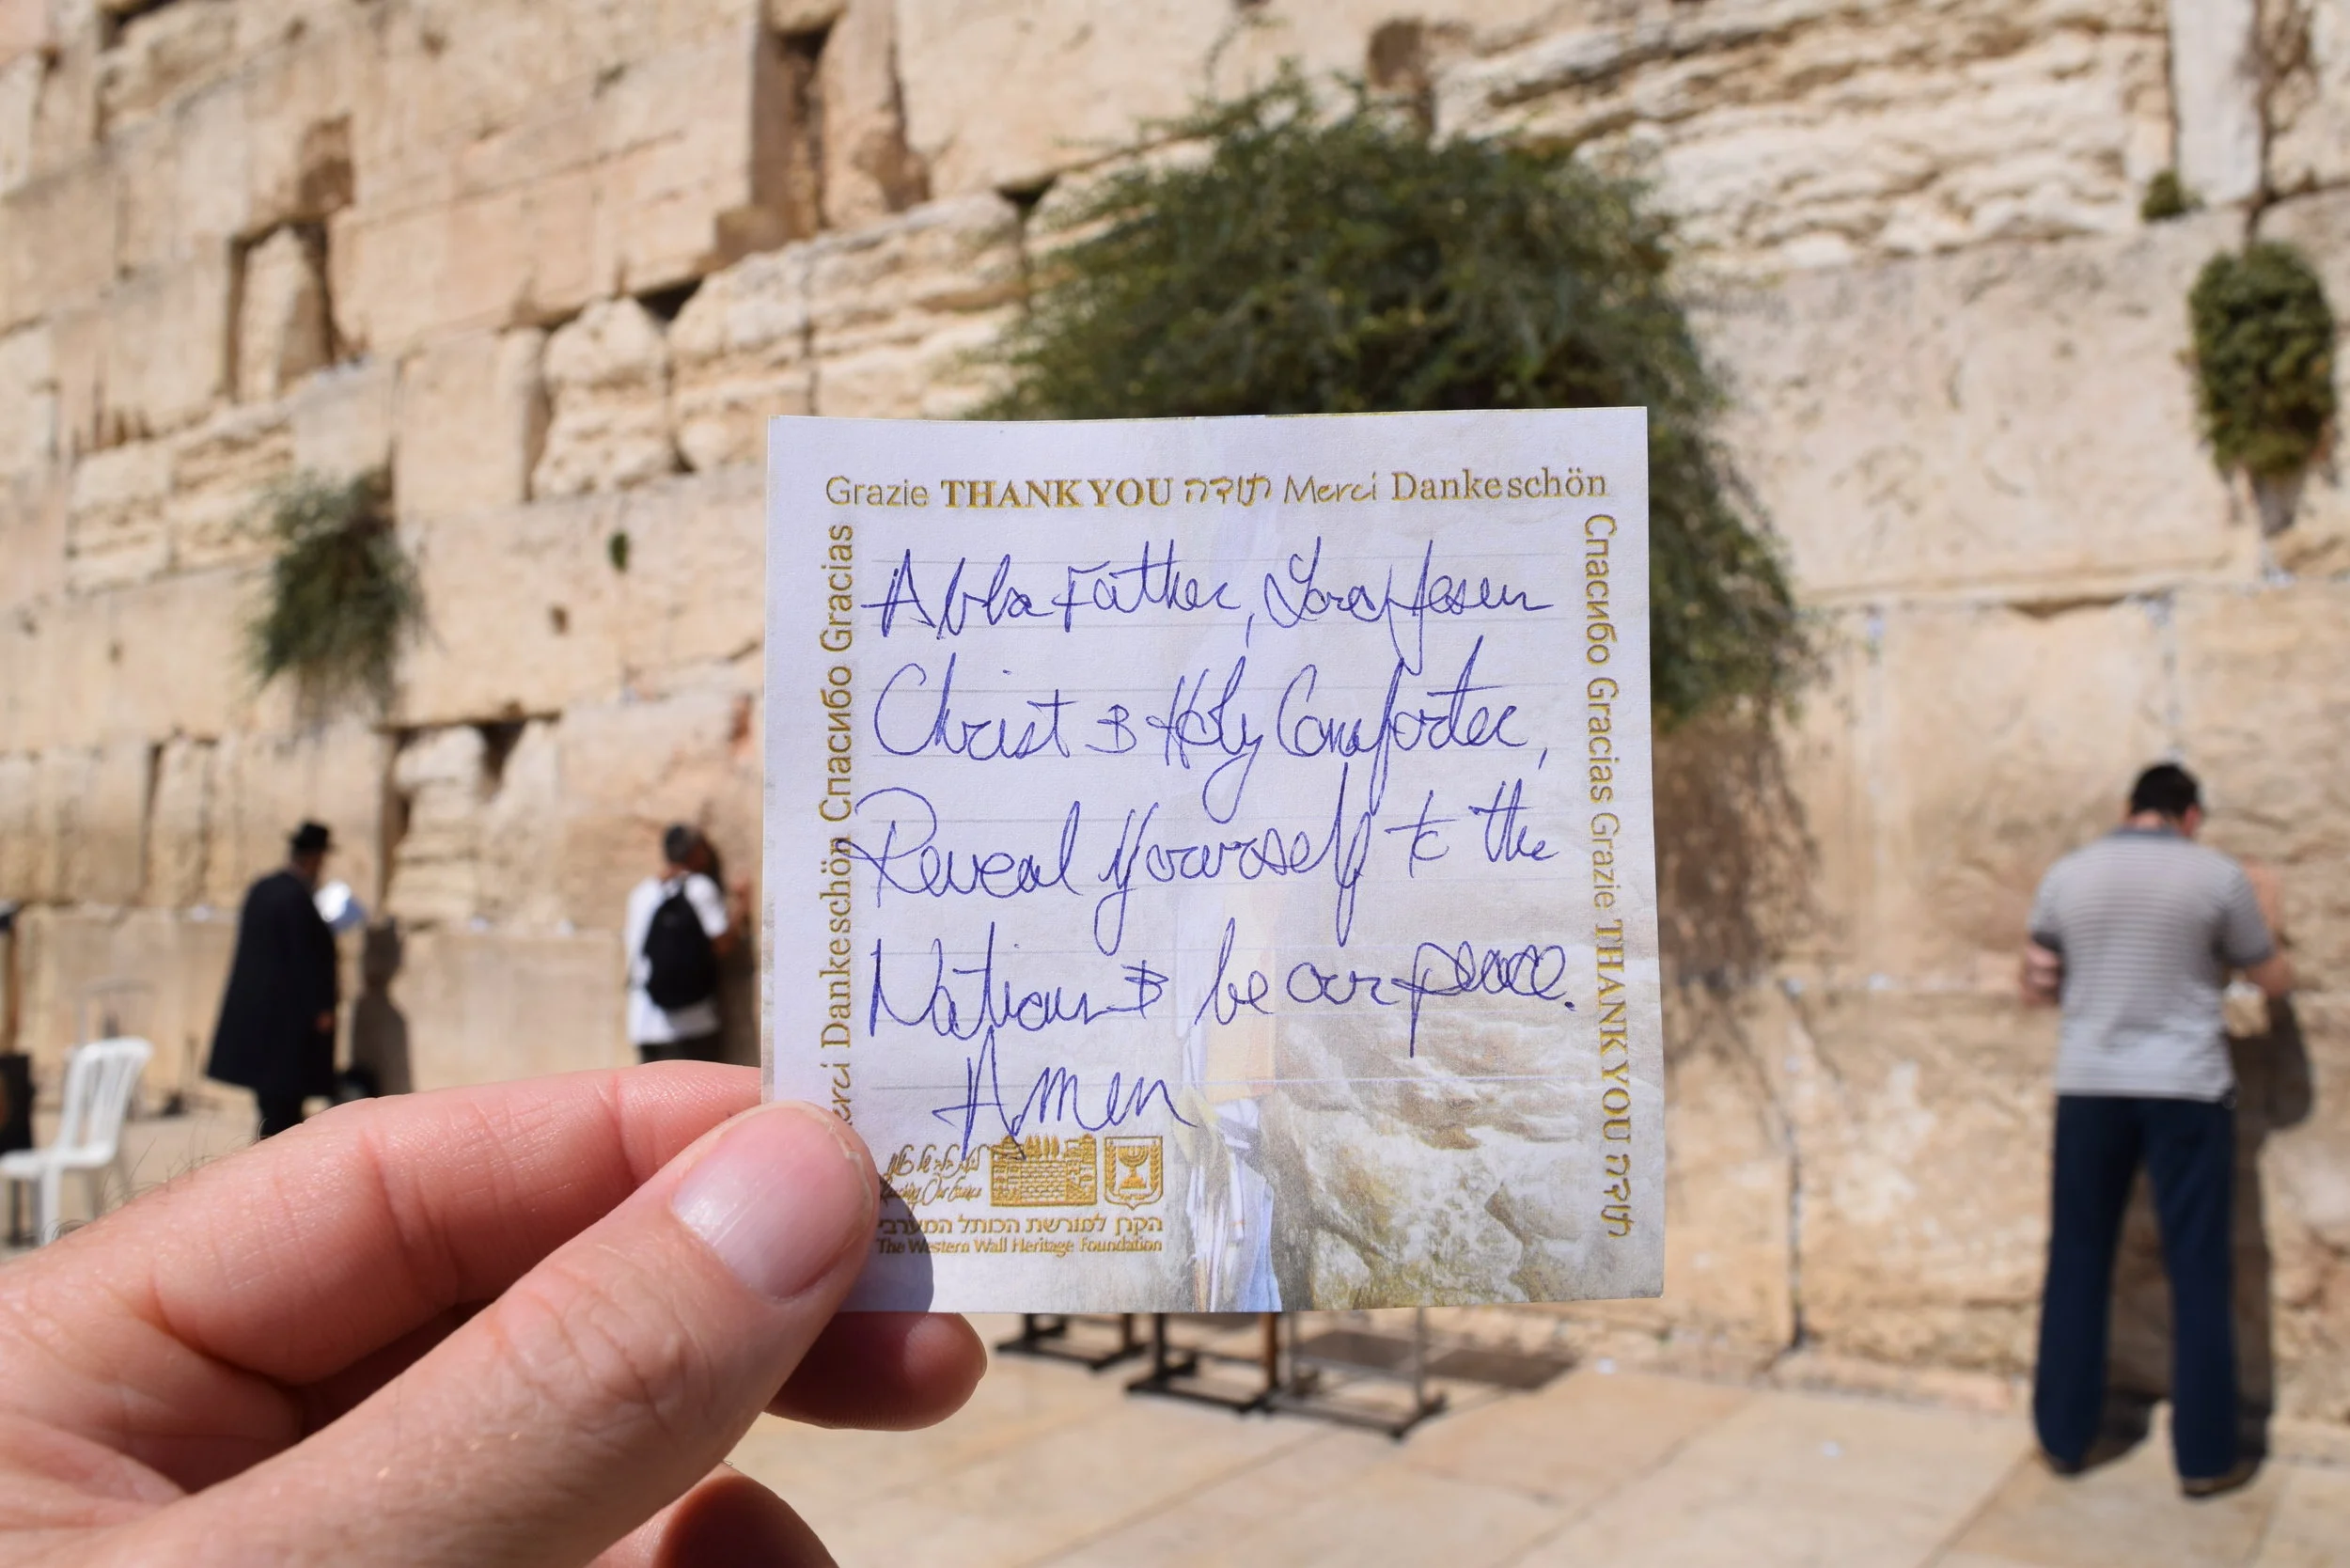 Grazie THANK YOU תודה Merci Dankeschön
Спасибо Gracias Grazie THANK YOU תודה
Dankeschön Спасибо Gracias
Abba Father, Lord Jesus
Christ & Holy Comforter,
Reveal Yourself to the
Nations & be our peace.
Amen
הקרן למורשת הכותל המערבי
The Western Wall Heritage Foundation